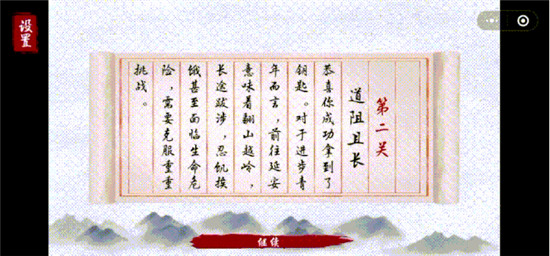 设置
第二关
道阻且长
恭喜你成功拿到了
钥匙。对于进步青
年而言，前往延安
意味着翻山越岭，
长途跋涉，忍饥挨
饿甚至面临生命危
险，需要克服重重
挑战。
继续